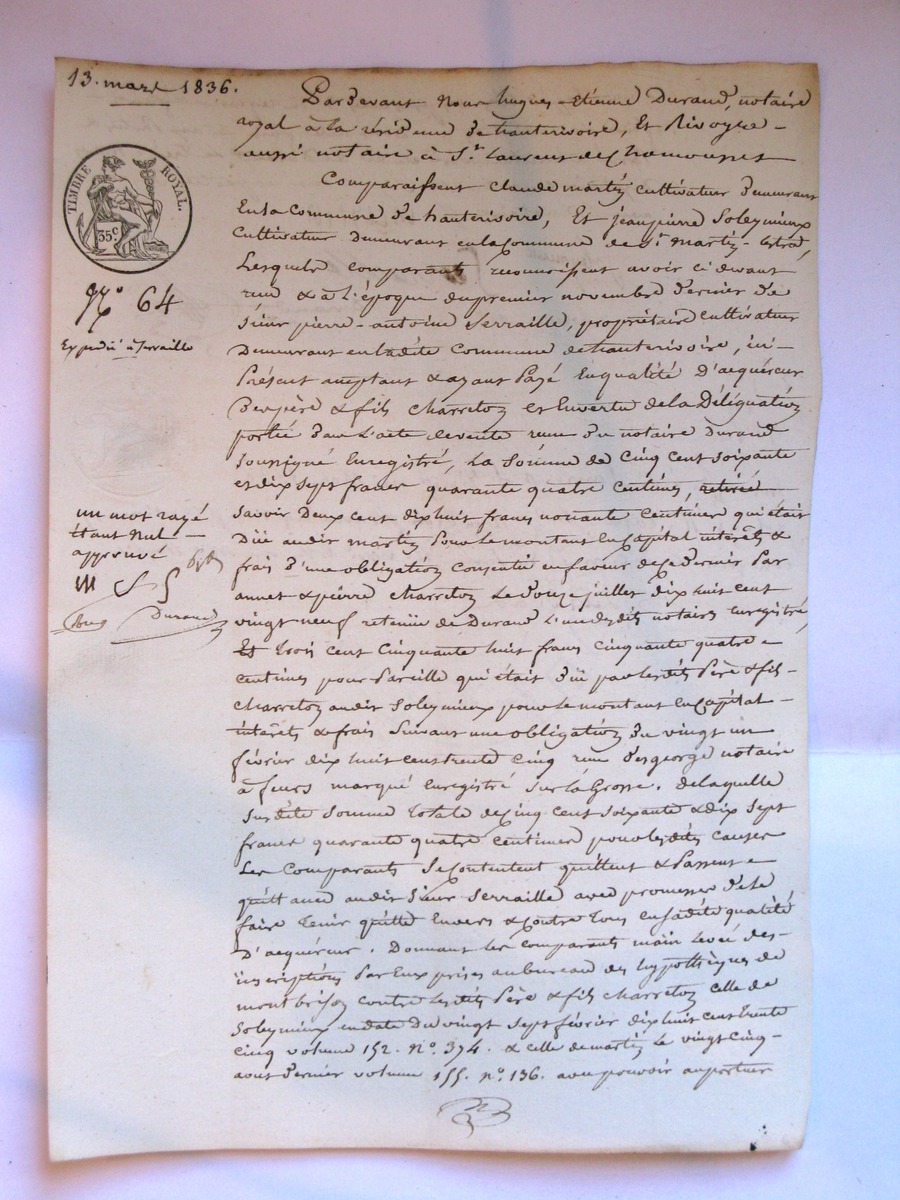 13. mars 1836.
Pardevant Nous hugues-Etienne Durand, notaire
royal à la résidence de hauterivoire, et Rivoyre
aussi notaire à St. Laurent de Chamousset
Comparaissent Claude martin cultivateur demeurant
En la Commune de hauterivoire, Et jean pierre Soleymieux
cultivateur demeurant en la Commune de St. martin-Lestrad,
Lesquels comparants reconnaissent avoir ci devant
reçu & à L'époque du premier novembre dernier de
sieur pierre-antoine Serraille, propriétaire cultivateur
demeurant en ladite Commune de hauterivoire, ici
Présent acceptant & ayant Payé En qualité D'acquéreur
Des père & fils Charreton et En vertu de la Délégation
portée dans L'acte de vente reçu du notaire Durand
soussigné Enregistré, La Somme de Cinq Cent soixante
et dix sept francs quarante quatre centimes, retirée
savoir Deux cent dix huit francs nonante Centimes qui était
Düe audit martin Pour le montant En Capital intérêts &
frais D'une obligation Consentie En faveur de ce dernier Par
annet & pierre Charreton Le douze juillet dix huit cent
vingt neuf retenüe de Durand L'un desdits notaires Enregistré,
Et trois cent Cinquante huit francs Cinquante quatre
centimes pour Pareille qui était düe par lesdits Père & fils
Charreton audit Soleymieux pour le montant en Capital
intérêts & frais Suivant une obligation du vingt un
février dix huit cent trente Cinq reçu Desgeorge notaire
à feurs marqué Enregistré Sur La Grosse. de laquelle
susdite Somme totale de Cinq Cent soixante & dix sept
francs quarante quatre Centimes pour lesdites Causes
Les Comparants Se Contentent quittent & Passent
quittance audit Sieur Serraille avec promesses de le
faire tenir quitte Envers & Contre tous En sadite qualité
D'acquéreur. Donnant Les comparants main levée des
inscriptions Par Eux prises au bureau des hypothèques de
montbrison contre lesdits Père & fils Charreton celle de
Soleymieux en date du vingt Sept février dix huit cent trente
Cinq volume 152. No. 374. & celle de martin Le vingt Cinq
aout dernier volume 155. no. 136. avec pouvoir au porteur
TIMBRE ROYAL.
35c.
No. 64
Expedié à Serraille
un mot rayé
étant nul
approuvé
Durand